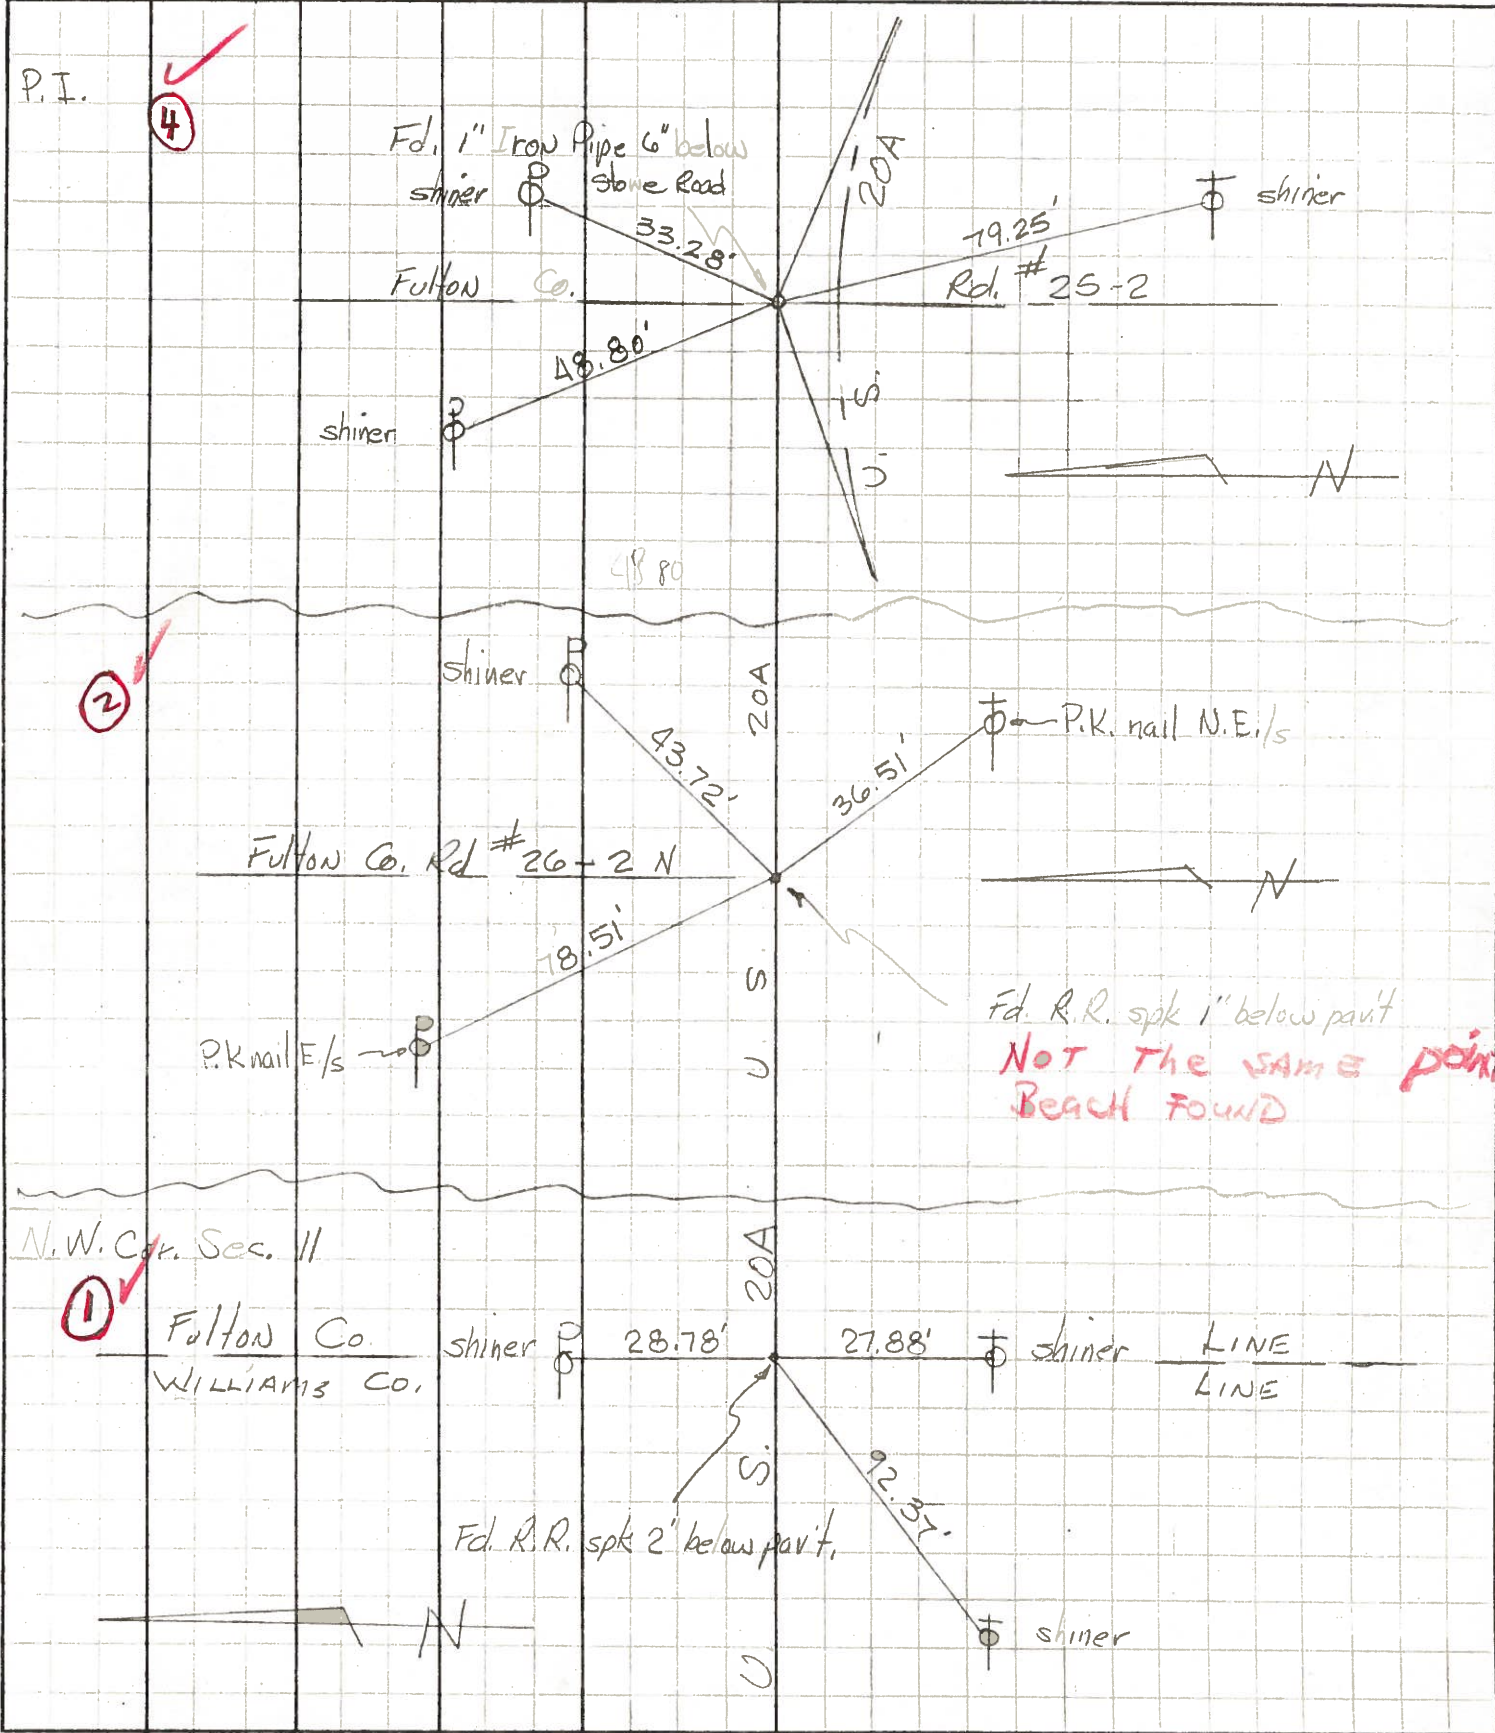 P.I.
4
Fd. 1" Iron Pipe 6" below
Stone Road
shiner
33.28'
20A
79.25'
shiner
Fulton Co.
Rd. # 25-2
48.80'
shiner
U.S.
N
48 80
2
shiner
20A
43.72'
36.51'
P.K. nail N.E./s
Fulton Co. Rd # 26-2 N
N
78.51'
P.K nail E./s
U S
Fd. R.R. spk 1" below pav't
NOT The SAME point
BeacH FOUND
N.W. Cor. Sec. 11
1
20A
Fulton Co.
shiner
28.78'
27.88'
shiner
LINE
WILLIAMS CO.
LINE
U. S.
92.37'
Fd. R.R. spk 2" below pav't.
N
shiner